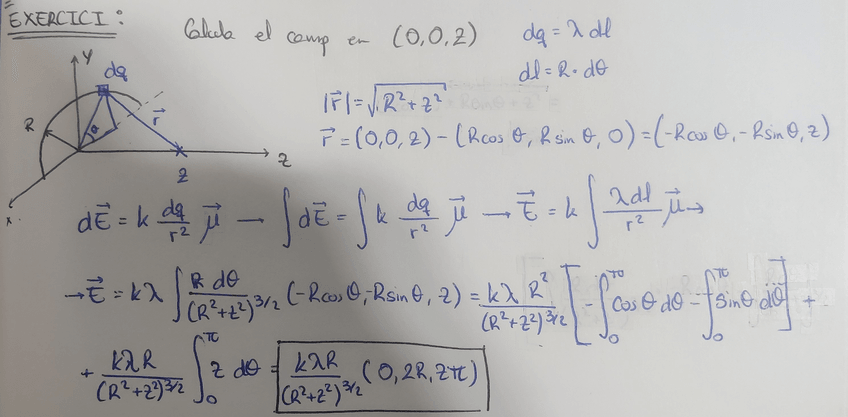 EXERCICI:
Calcula el camp en (0,0,z)
dq = λ dl
dl = R · dθ
y
dq
R
θ
r⃗
z
z
x
|r⃗| = √(R² + z²)
r⃗ = (0,0,z) − (R cos θ, R sin θ, 0) = (−R cos θ, −R sin θ, z)
dE⃗ = k dq/r² μ⃗ → ∫dE⃗ = ∫ k dq/r² μ⃗ → E⃗ = k ∫ λdl/r² μ⃗ →
→ E⃗ = kλ ∫ R dθ/(R²+z²)^3/2 (−R cos θ, −R sin θ, z) = kλ R²/(R²+z²)^3/2 [−∫₀^π cos θ dθ − ∫₀^π sin θ dθ] +
+ kλR/(R²+z²)^3/2 ∫₀^π z dθ = kλR/(R²+z²)^3/2 (0, 2R, zπ)